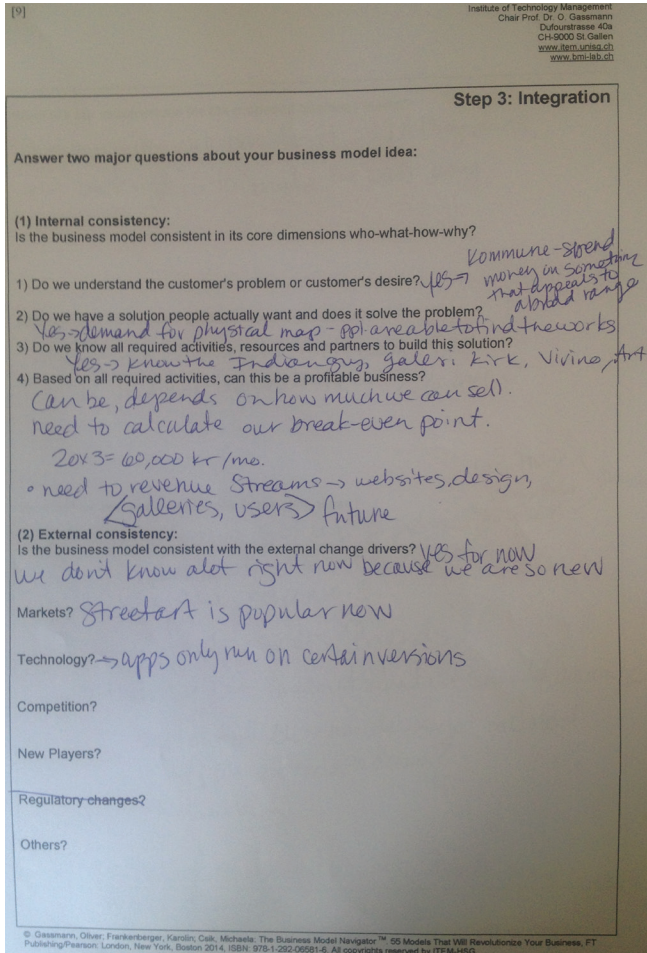 [9]
Institute of Technology Management
Chair Prof. Dr. O. Gassmann
Dufourstrasse 40a
CH-9000 St.Gallen
www.item.unisg.ch
www.bmi-lab.ch
Step 3: Integration
Answer two major questions about your business model idea:
(1) Internal consistency:
Is the business model consistent in its core dimensions who-what-how-why?
1) Do we understand the customer's problem or customer's desire? yes → Kommune - spend
money on something
that appeals to
a broad range
2) Do we have a solution people actually want and does it solve the problem?
Yes → demand for physical map - ppl are able to find the works
3) Do we know all required activities, resources and partners to build this solution?
Yes → know the Indian guy, galeri kirk, Vivino, Art
4) Based on all required activities, can this be a profitable business?
Can be, depends on how much we can sell.
need to calculate our break-even point.
20x3 = 60,000 kr/mo.
• need to revenue streams → websites, design,
<galleries, users> future
(2) External consistency:
Is the business model consistent with the external change drivers? Yes for now
we don't know alot right now because we are so new
Markets? Streetart is popular now
Technology? → apps only run on certain versions
Competition?
New Players?
Regulatory changes?
Others?
© Gassmann, Oliver; Frankenberger, Karolin; Csik, Michaela: The Business Model Navigator™. 55 Models That Will Revolutionize Your Business, FT
Publishing/Pearson: London, New York, Boston 2014, ISBN: 978-1-292-06581-6. All copyrights reserved by ITEM-HSG